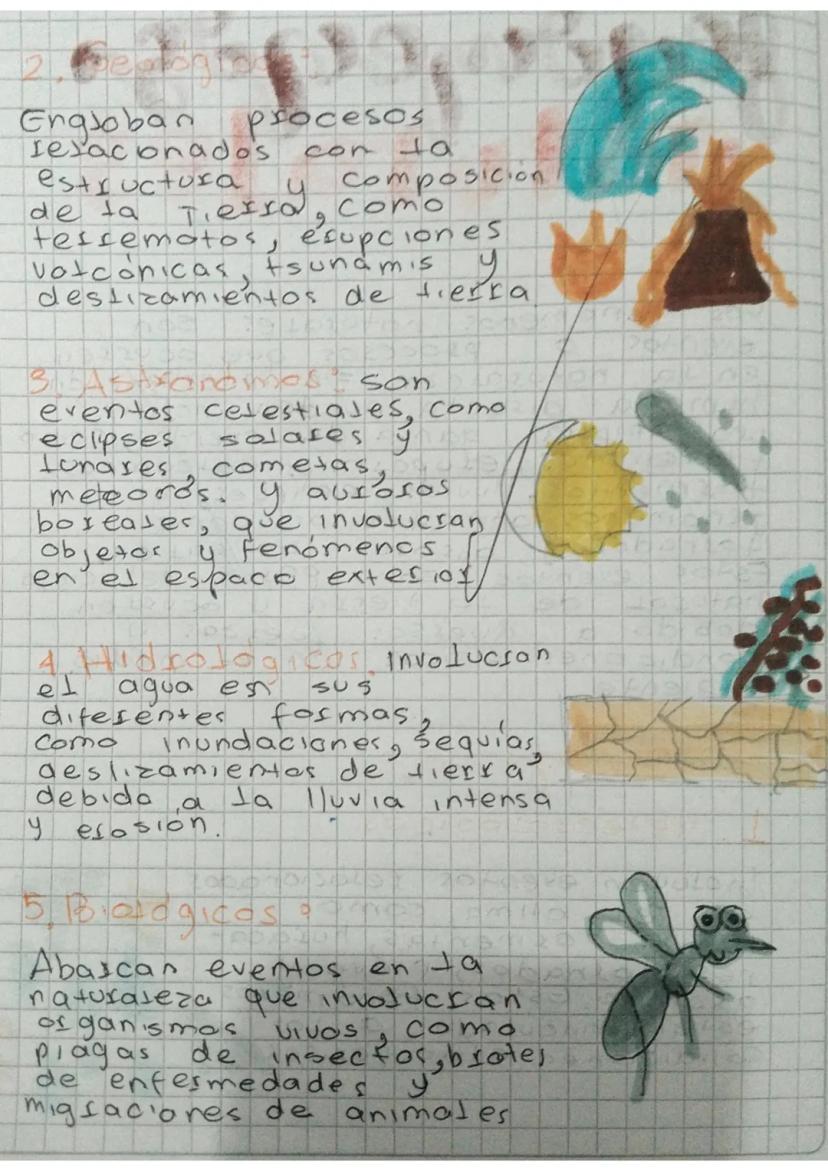 2. Geológicos:
Engloban procesos
relacionados con la
estructura y composición
de la Tierra, como
terremotos, erupciones
volcánicas, tsunamis y
deslizamientos de tierra
3. Astronómos: son
eventos celestiales, como
eclipses solares y
lunares, cometas,
meteoros. y auroras
boreales, que involucran
objetos y fenómenos
en el espacio exterior
4. Hidrológicos. involucran
el agua en sus
diferentes formas,
como inundaciones, sequías,
deslizamientos de tierra
debido a la lluvia intensa
y erosión.
5. Biológicos:
Abarcan eventos en la
naturaleza que involucran
organismos vivos, como
plagas de insectos, brotes
de enfermedades y
migraciones de animales